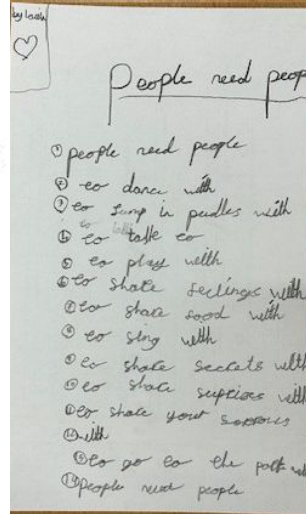 People need peop
① people need people
② to dance with
③ to Jump in pudles with
④ to talk to
⑤ to play with
⑥ to share feelinges with
⑦ to share food with
⑧ to sing with
⑨ to share secrets with
⑩ to share suprises with
⑪ to share your sorrows
⑫ with
⑬ to go to the park wi
⑭ people need people